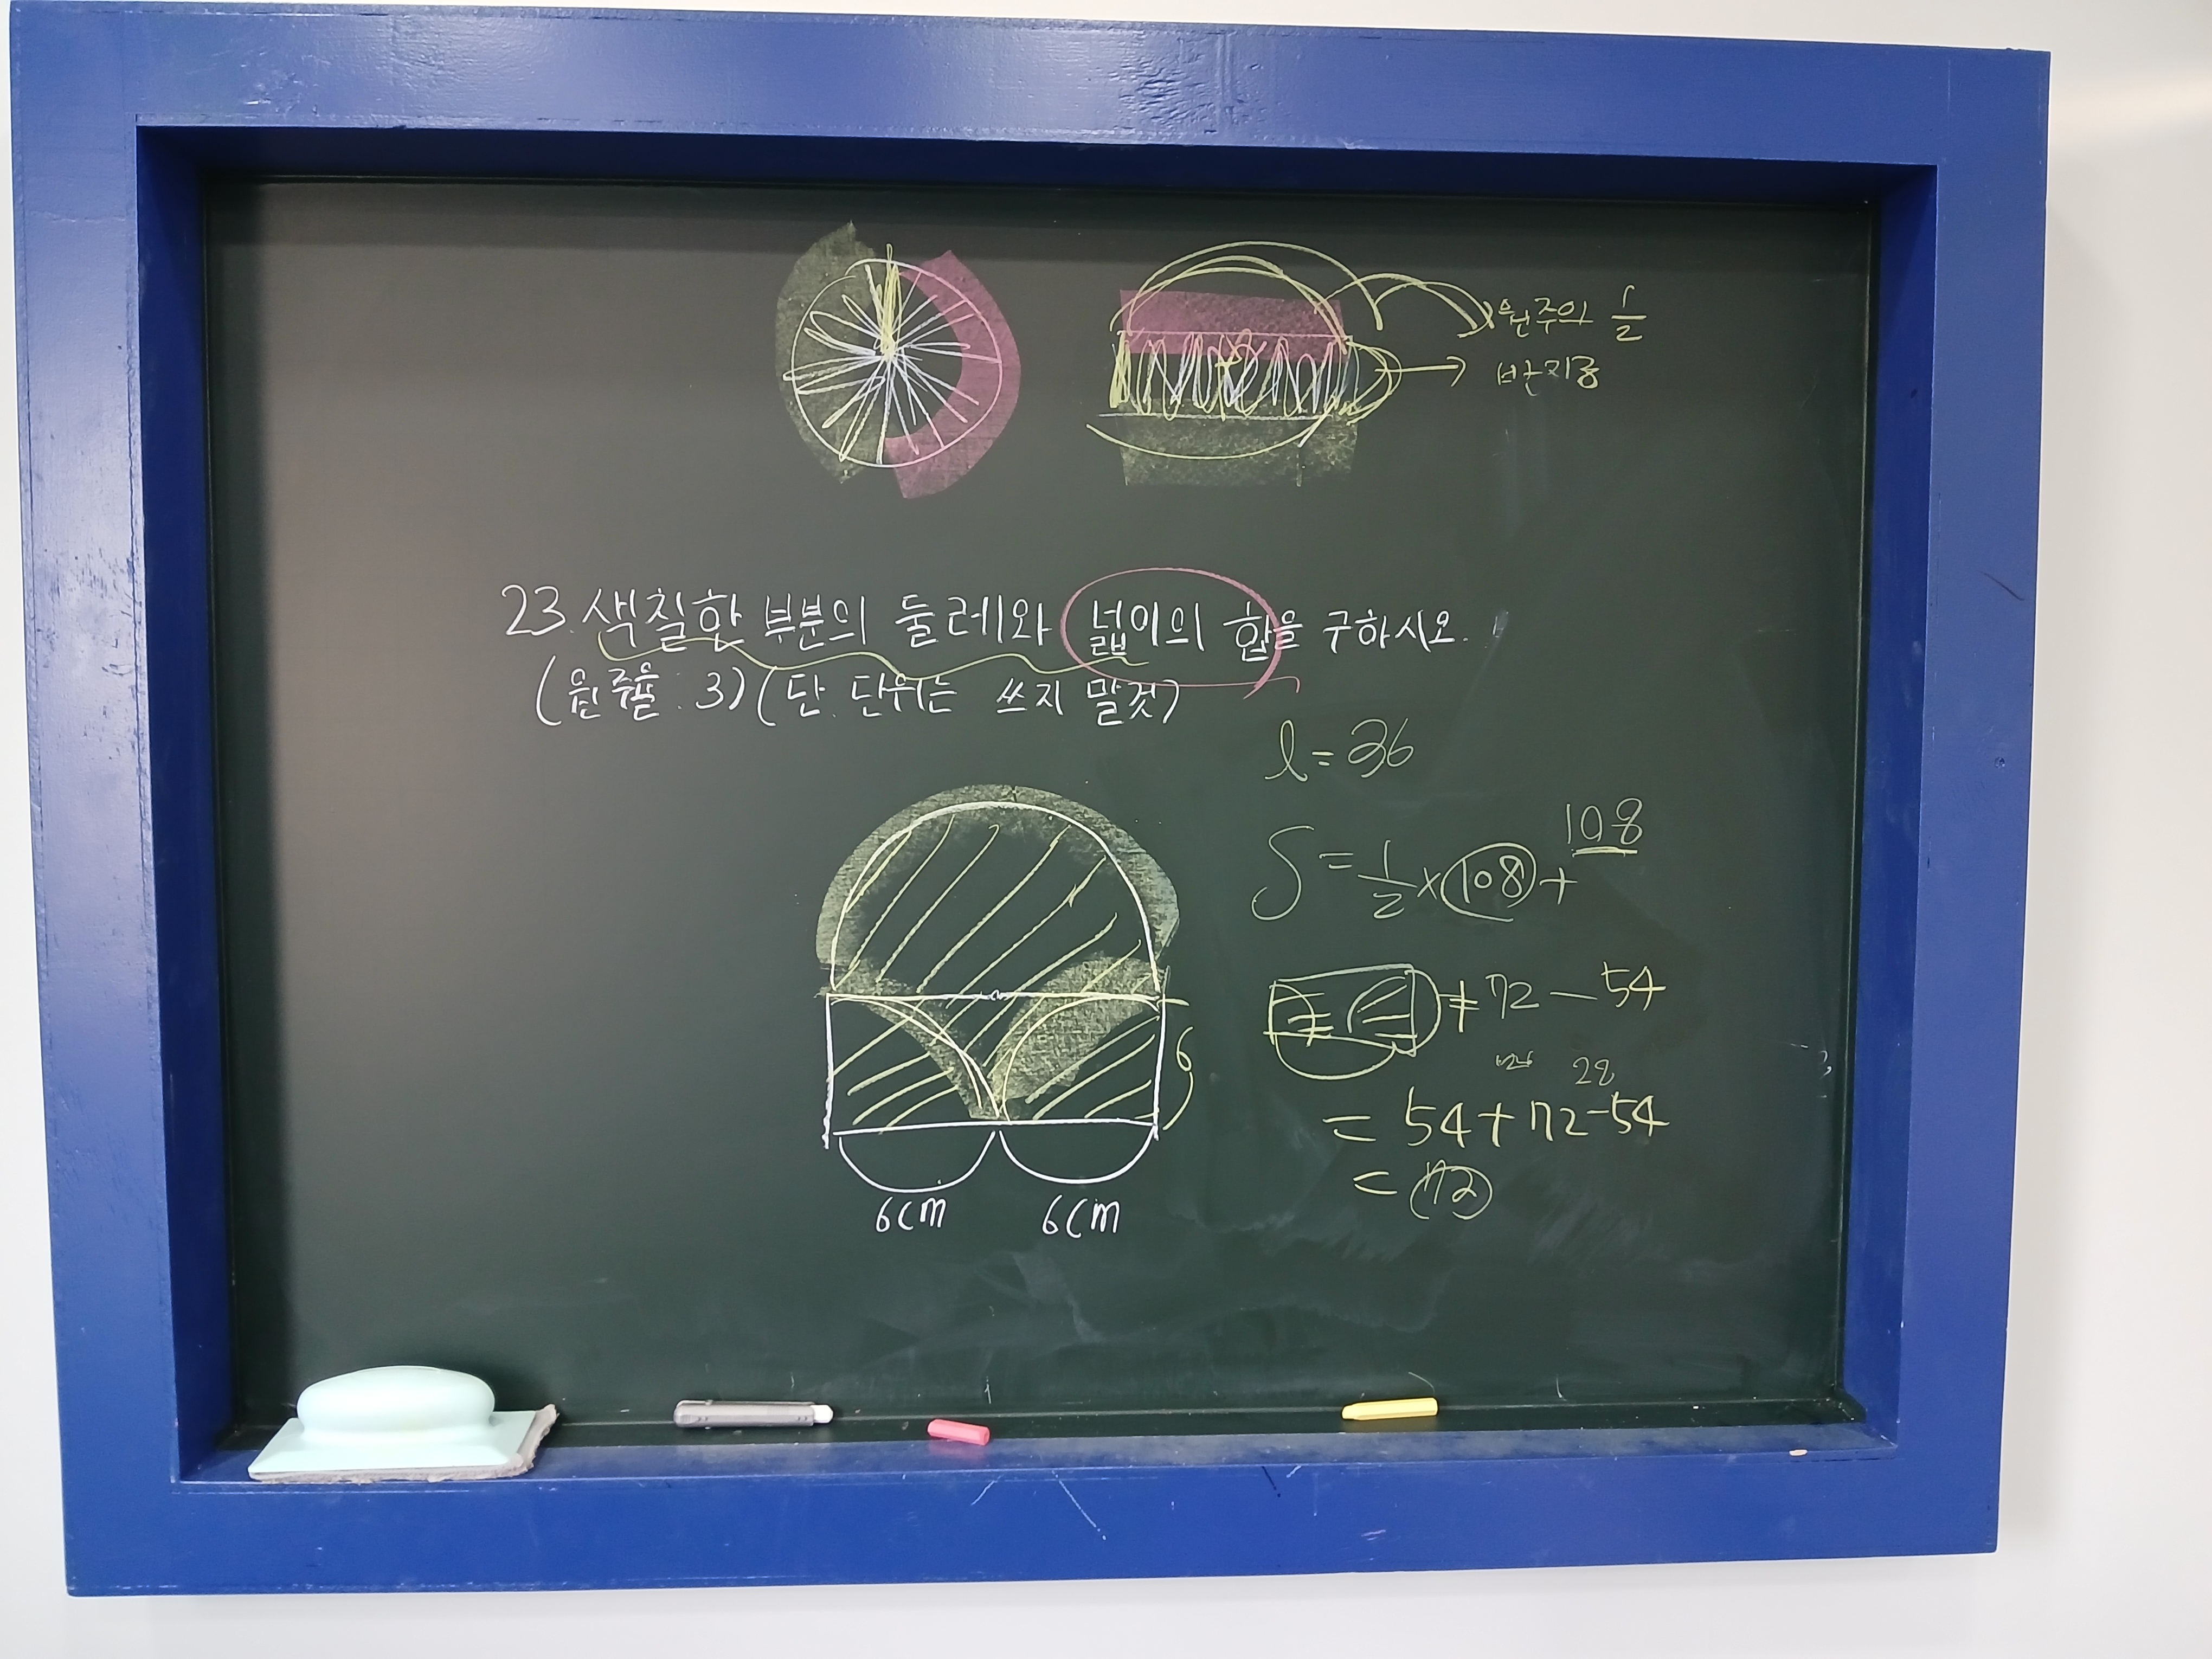 원주의 1/2
반지름
23. 색칠한 부분의 둘레와 넓이의 합을 구하시오.
(원주율 : 3) (단. 단위는 쓰지 말것)
l = 36
108
S = 1/2 × 108 +
6
72 - 54
28
= 54 + 72 - 54
= 72
6cm 6cm